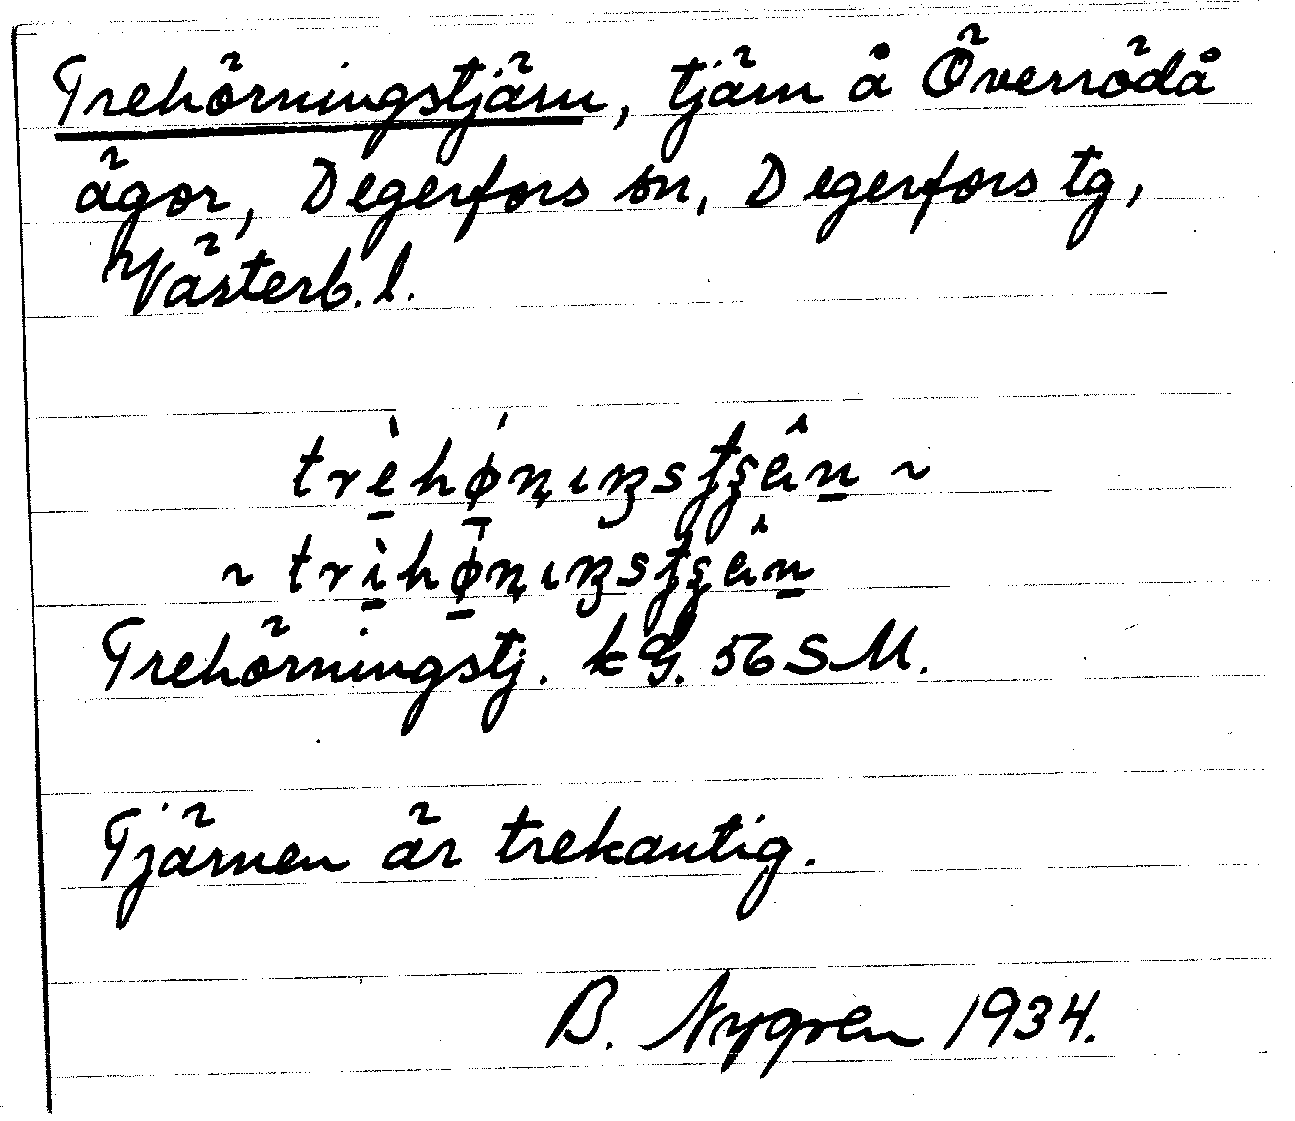 Trehörningstjärn, tjärn å Överrödå
ägor, Degerfors sn, Degerfors tg,
Västerb. l.
trèhǿṇıŋstʂên ~
~ trìhø̄ṇıŋstʂên
Trehörningstj. kG. 56 SM.
Tjärnen är trekantig.
B. Nygren 1934.